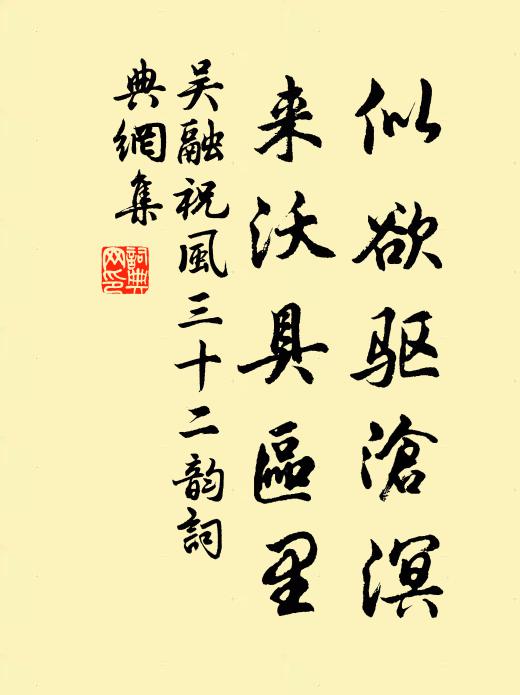 似欲驱滄溟
来沃具區里
吴融祝風三十二韵詞
典網集
詞典
网印